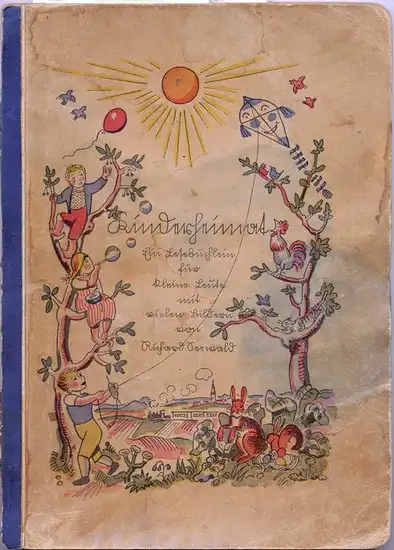 Kinderheimat
Ein Lesebüchlein
für
kleine Leute
mit
vielen Bildern
von
Richard Seewald